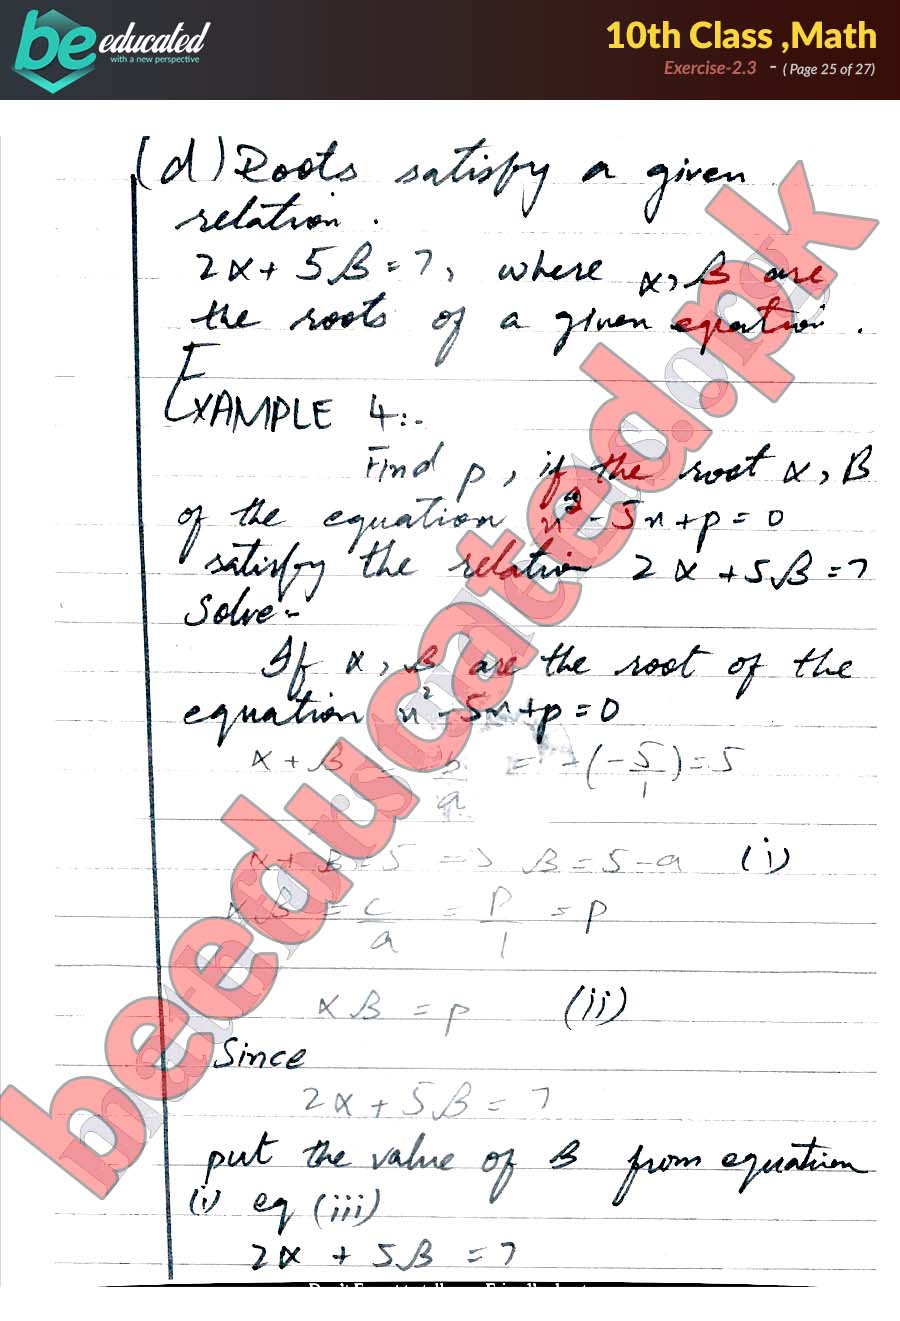 be educated
with a new perspective
10th Class ,Math
Exercise-2.3 - ( Page 25 of 27)
(d) Roots satisfy a given
relation .
2α + 5β = 7, where α, β are
the roots of a given equation .
EXAMPLE 4:-
Find p, if the root α, β
of the equation x² - 5x + p = 0
satisfy the relation 2α + 5β = 7
Solve:-
If α, β are the root of the
equation x² - 5x + p = 0
α + β = -b/a = -(-5/1) = 5
α + β = 5 => β = 5 - α (i)
αβ = c/a = p/1 = p
αβ = p (ii)
Since
2α + 5β = 7
put the value of β from equation
(i) eq (iii)
2α + 5β = 7
beeducated.pk